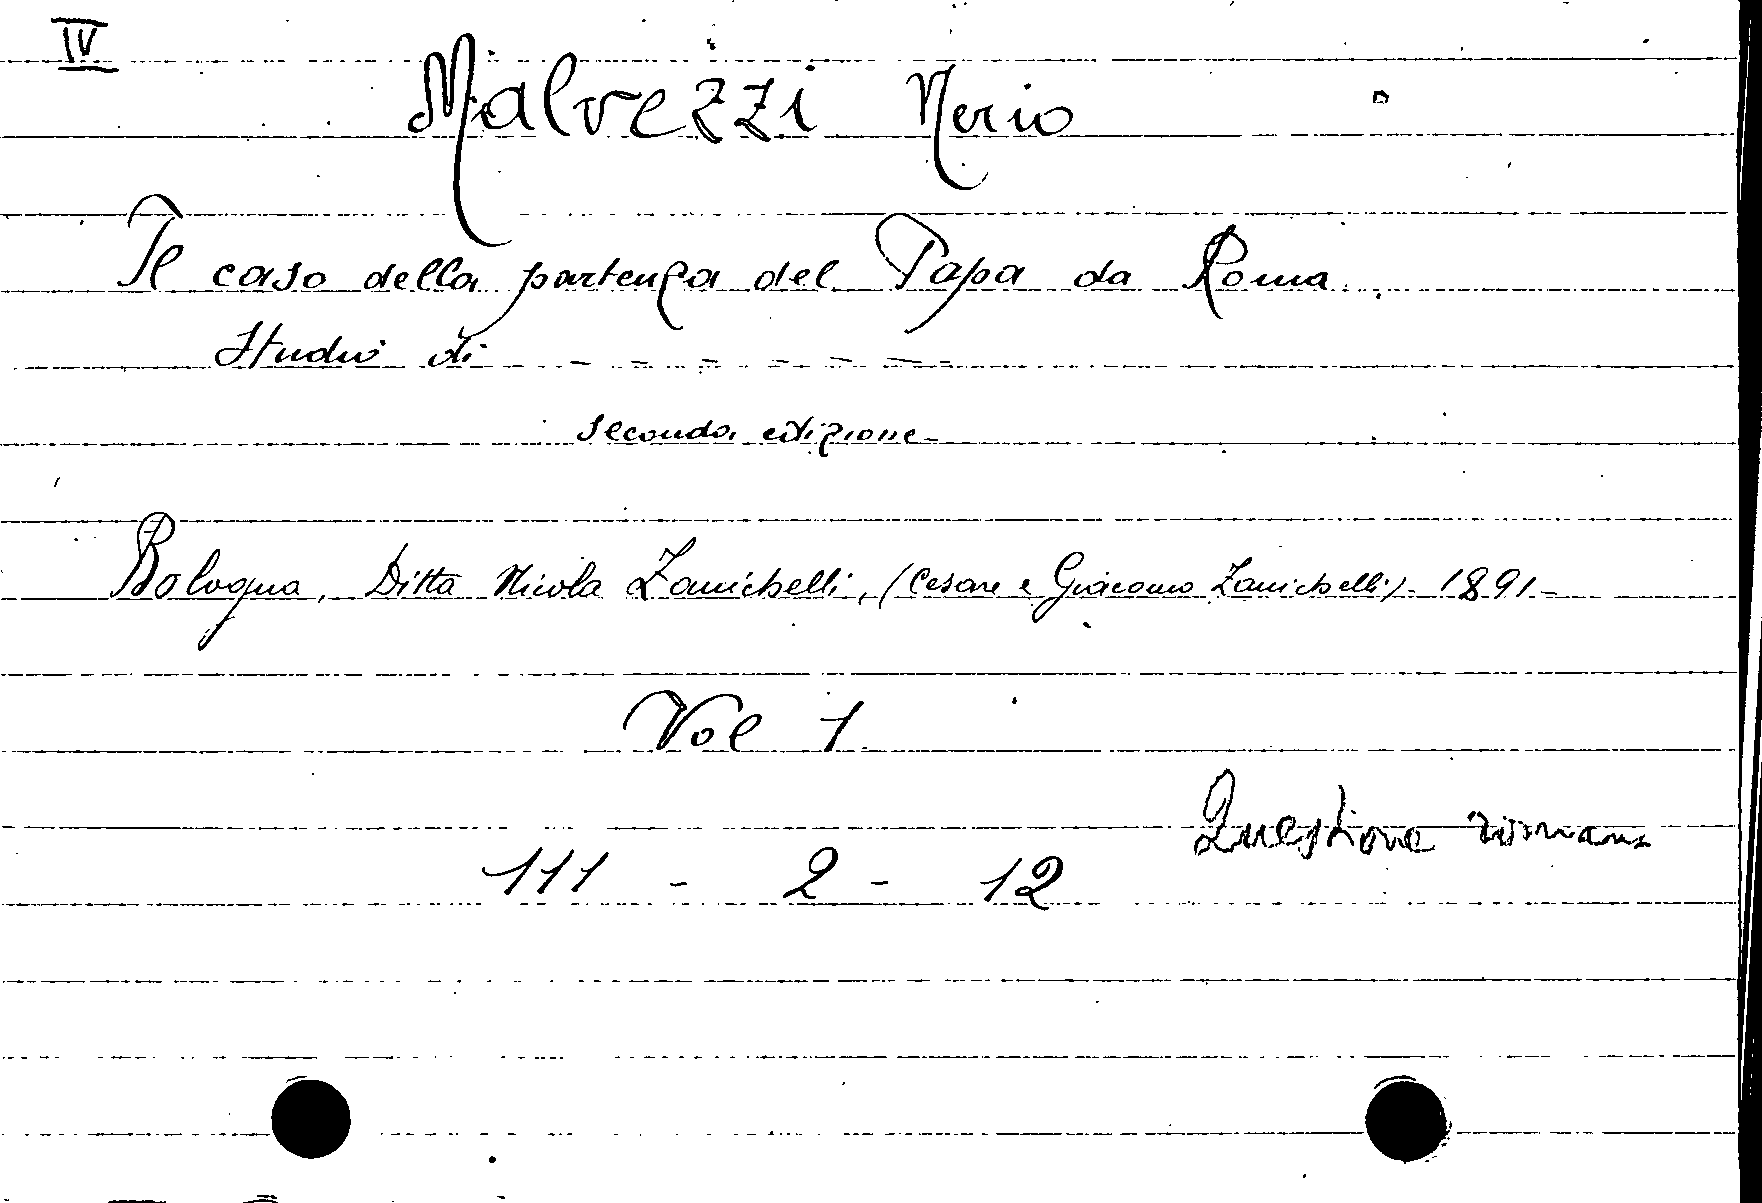 IV
Malvezzi Nerio
Il caso della partenza del Papa da Roma.
Studio di - - - - - -
seconda edizione
Bologna, Ditta Nicola Zanichelli, (Cesare e Giacomo Zanichelli). 1891-
Vol 1
Questione romana
111 - 2 - 12